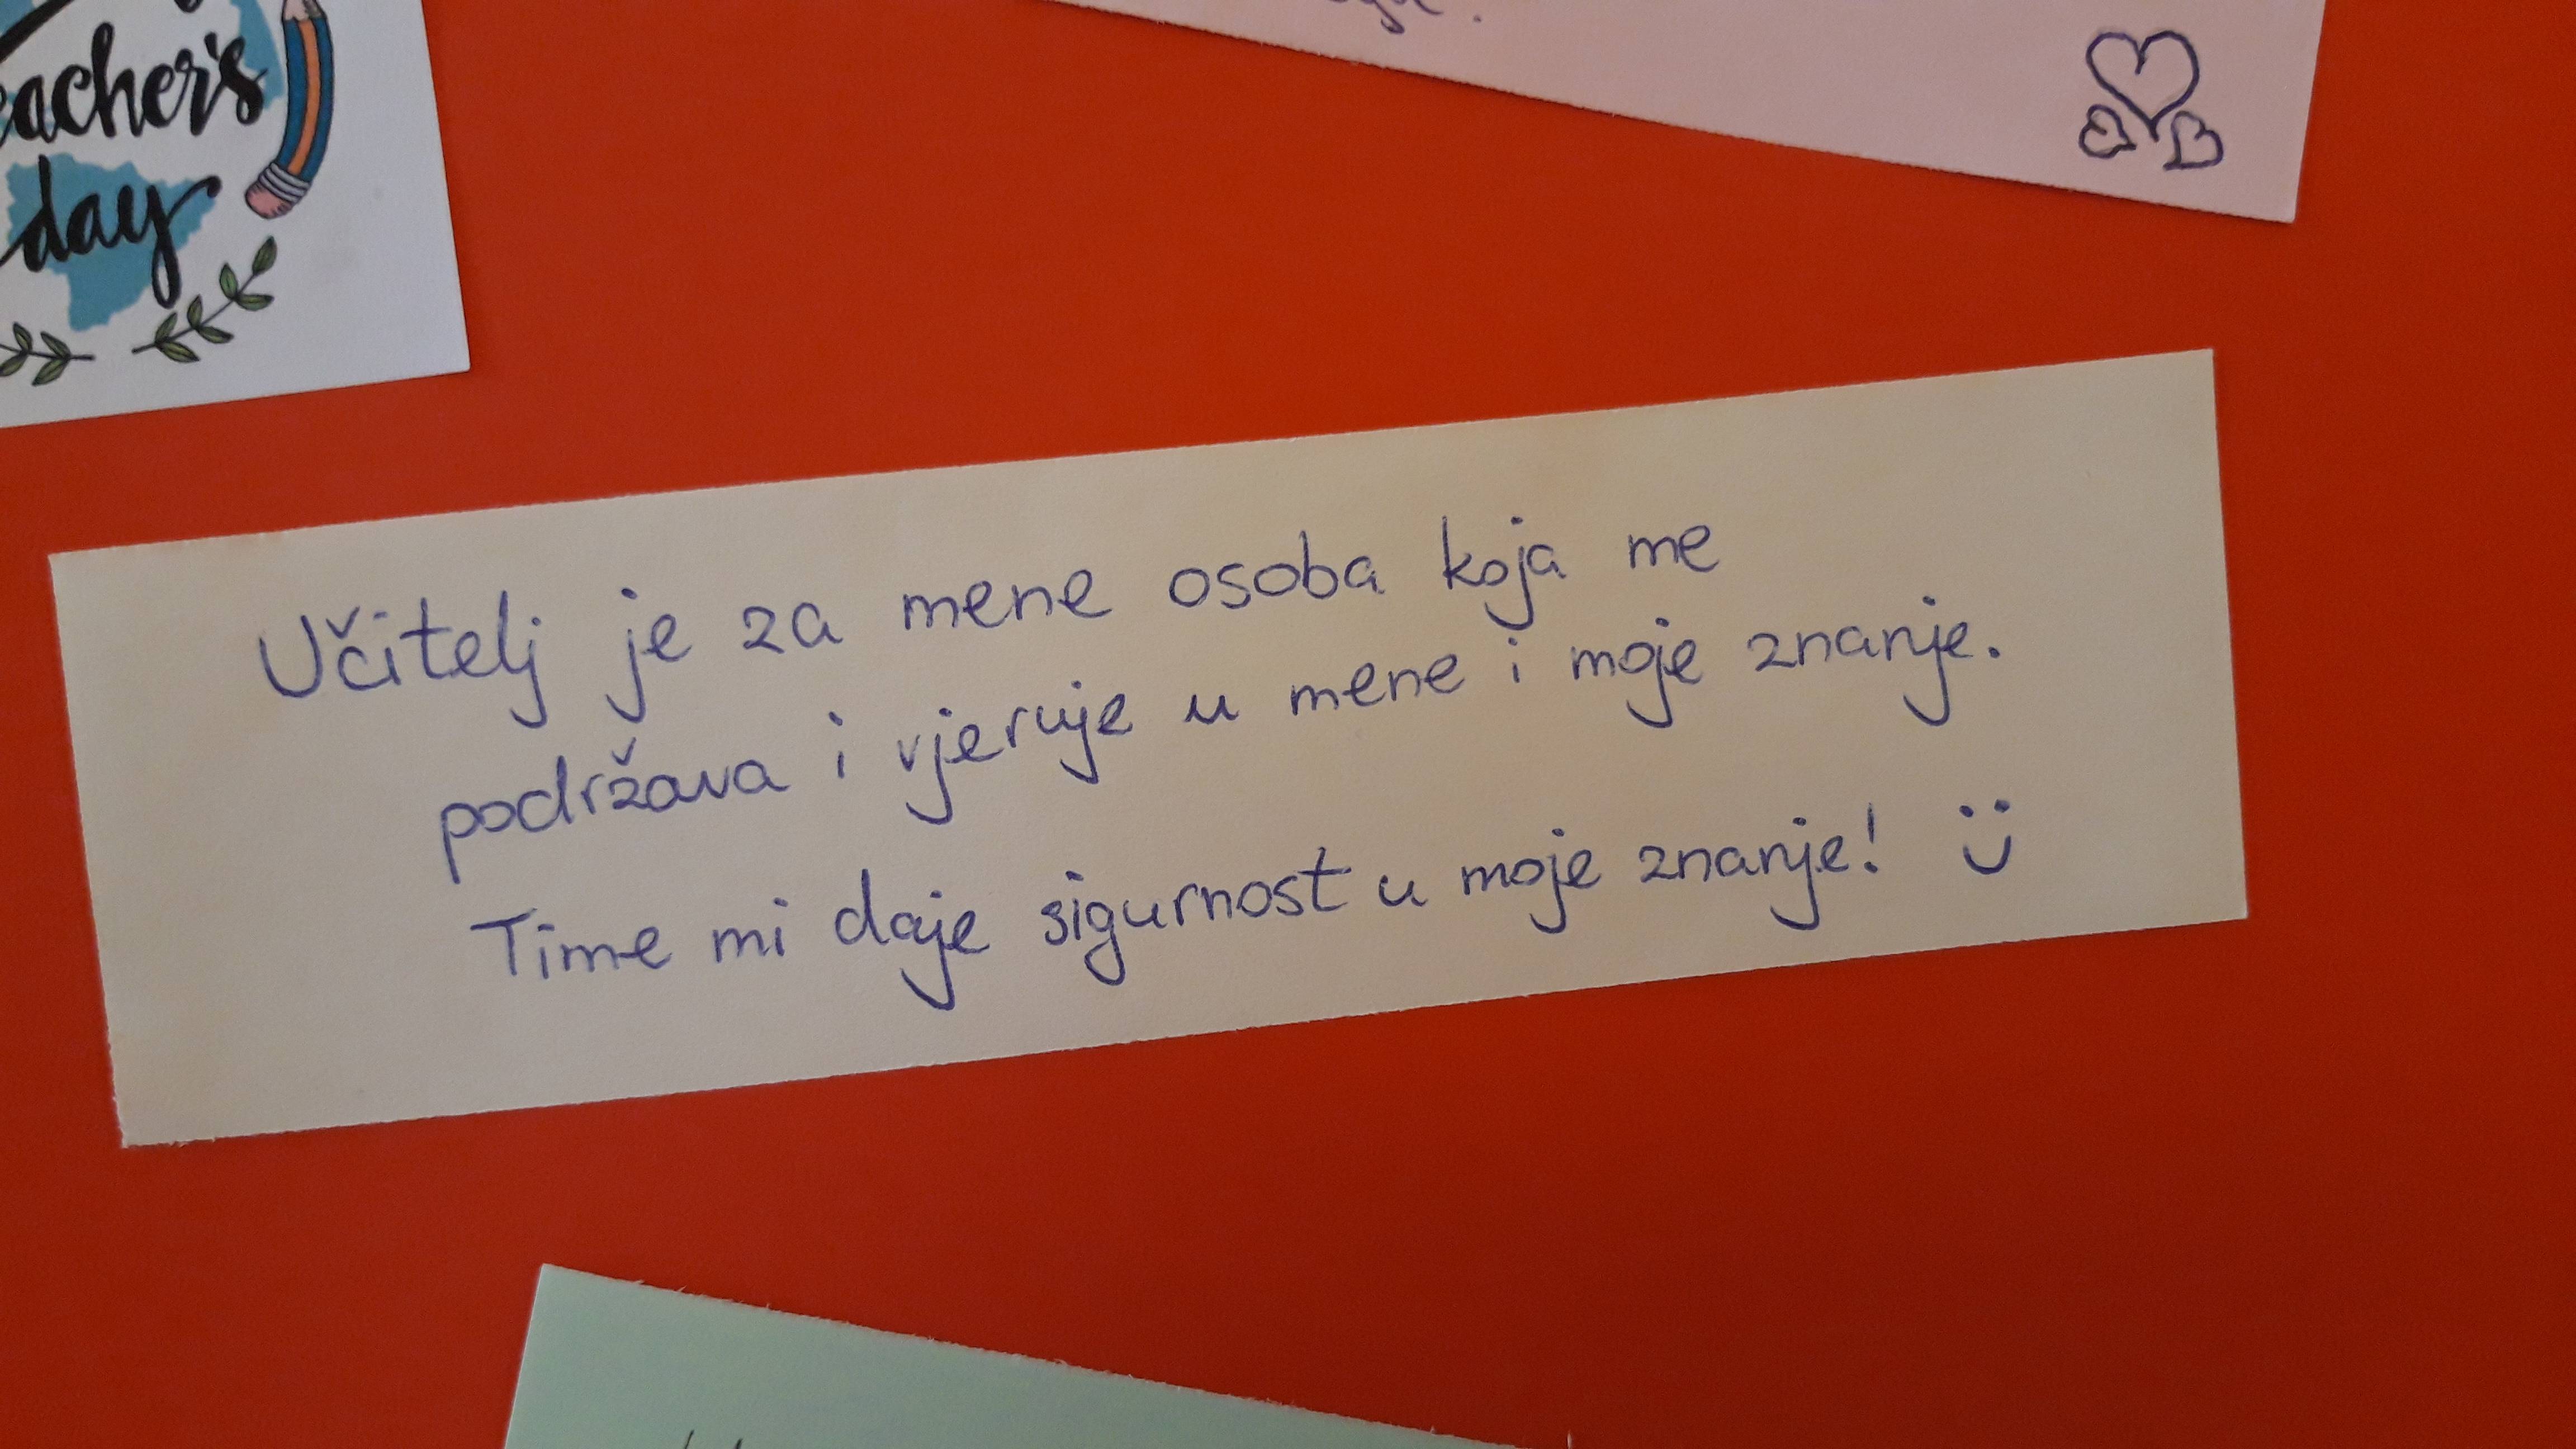 eacher's
day
Učitelj je za mene osoba koja me
podržava i vjeruje u mene i moje znanje.
Time mi daje sigurnost u moje znanje! :)